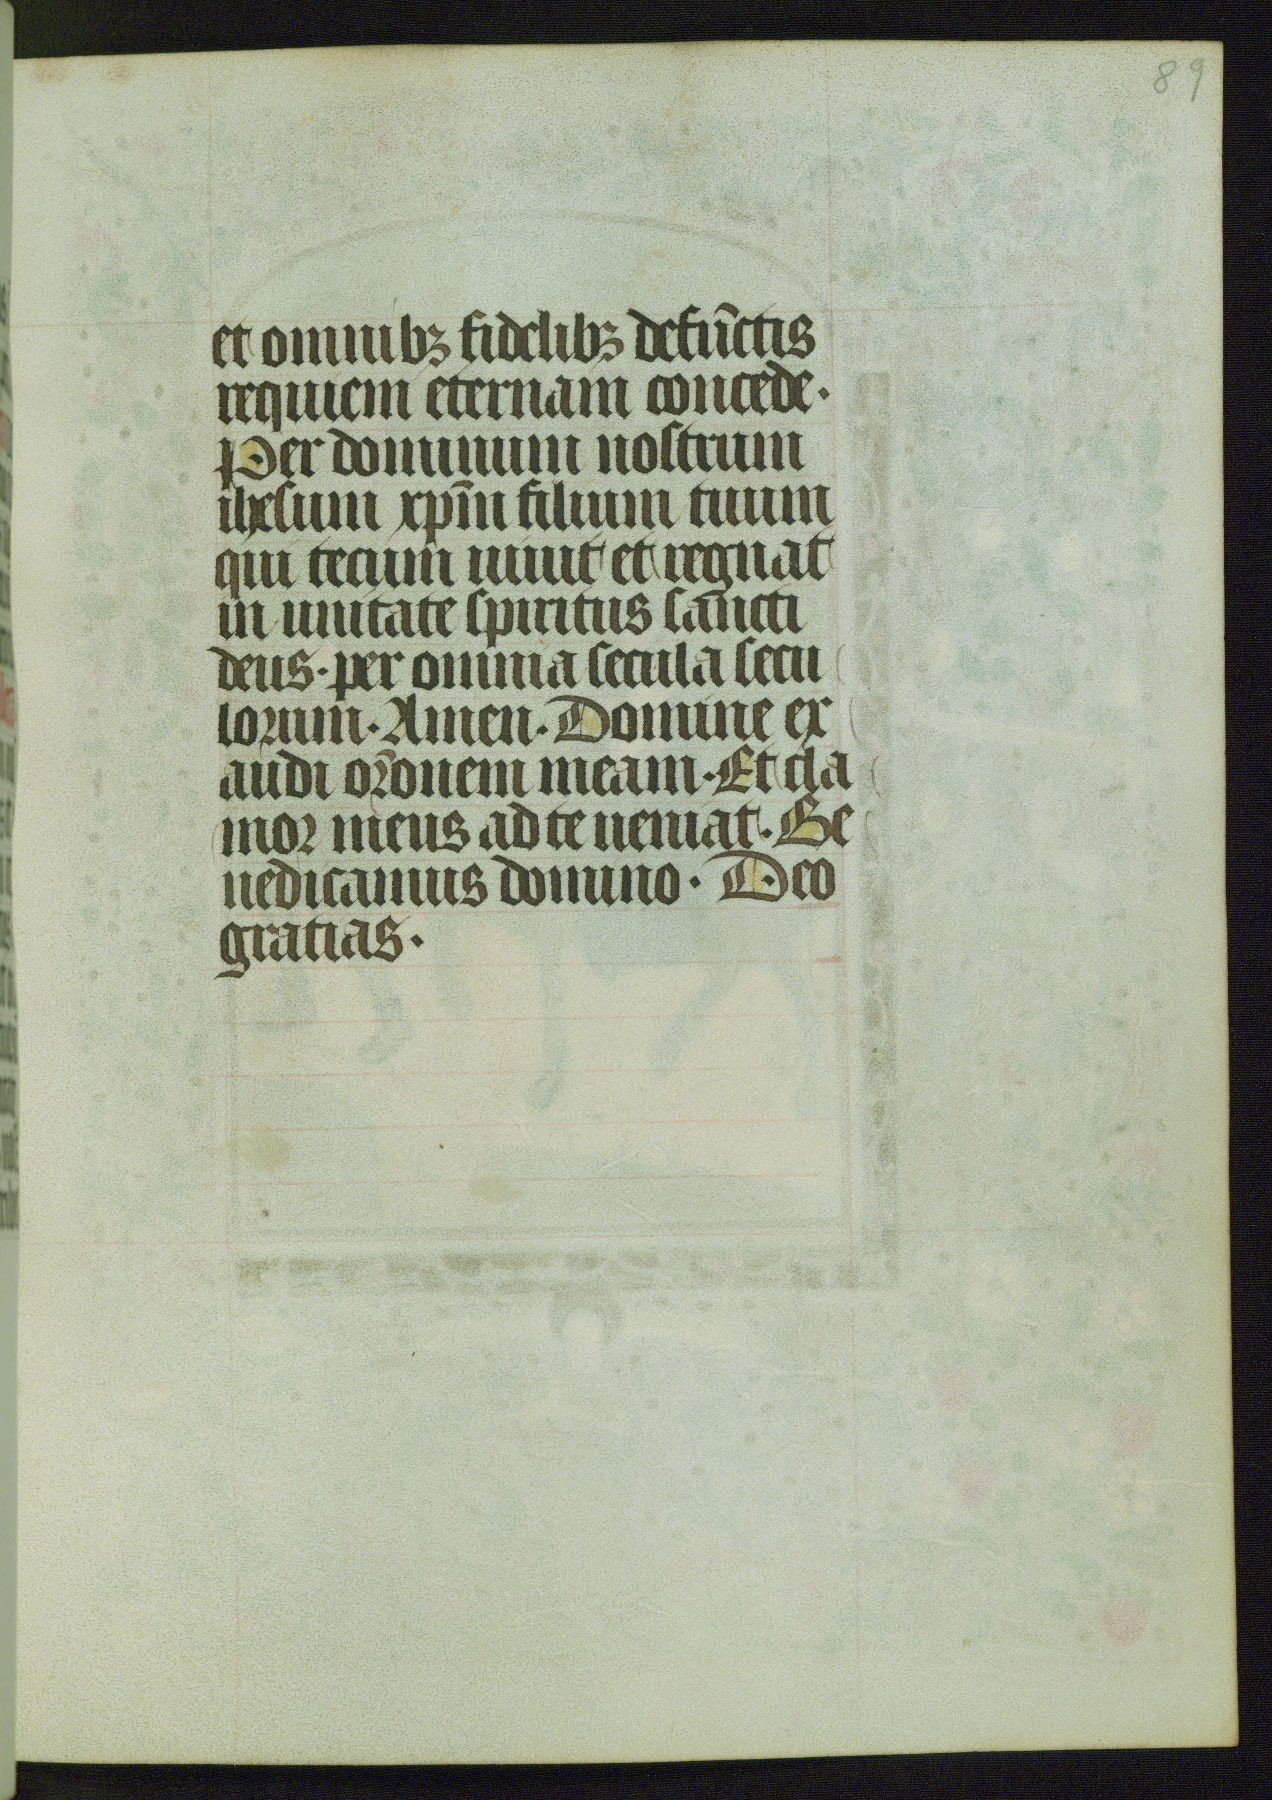 89
et omnibꝫ fidelibꝫ defūctis
requiem eternam concede·
Per dominum nostrum
ihesum xp̄m filium tuum
qui tecum uiuit et regnat
in unitate spiritus sancti
deus· per omnia secula secu
lorum· Amen· Domine ex
audi or̄onem meam· Et cla
mor meus ad te ueniat· Be
nedicamus domino· Deo
gratias·